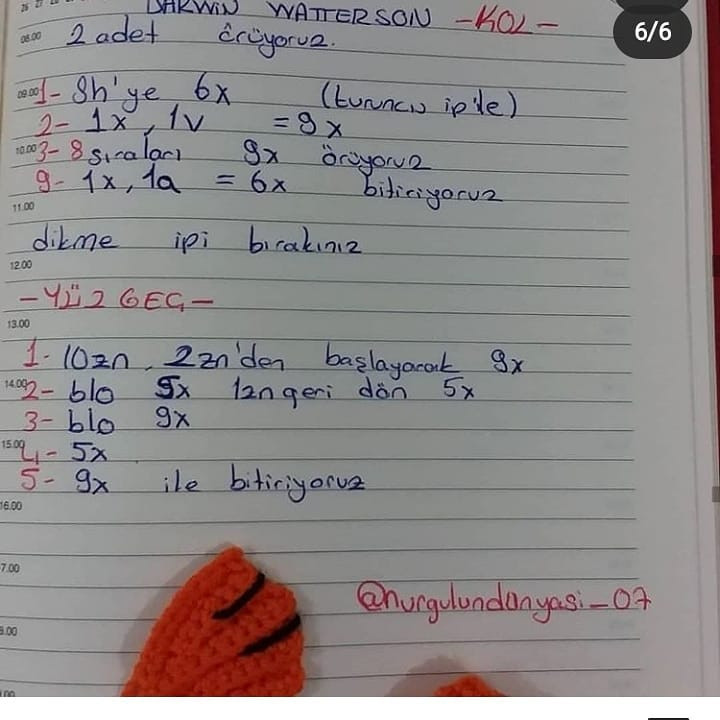 26 27
6/6
DARWIN WATTERSON -KOL-
08.00 2 adet örüyoruz.
09.00 1- Sh'ye 6x (turuncu ip'le)
2- 1x, 1v = 9x
10.00 3-8 sıraları 9x örüyoruz
9- 1x, 1a = 6x bitiriyoruz
11.00
dikme ipi bırakınız
12.00
-YÜZGEÇ-
13.00
1- 10zn, 2zn'den başlayarak 9x
14.00 2- blo 5x 1zn geri dön 5x
3- blo 9x
15.00 4- 5x
5- 9x ile bitiriyoruz
16.00
7.00
@nurgulundunyasi_07
8.00